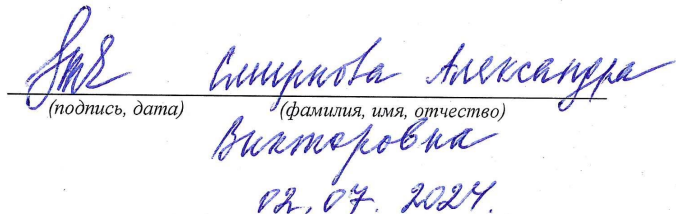 Смирнова Александра
(подпись, дата) (фамилия, имя, отчество)
Викторовна
02.07.2024.